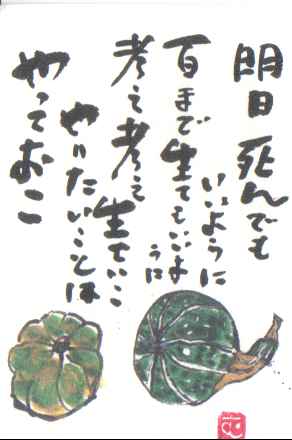 明日 死んでも
いいように
百まで生てもいいよ
うに
考え考え生ていこ
やりたいことは
やっておこ